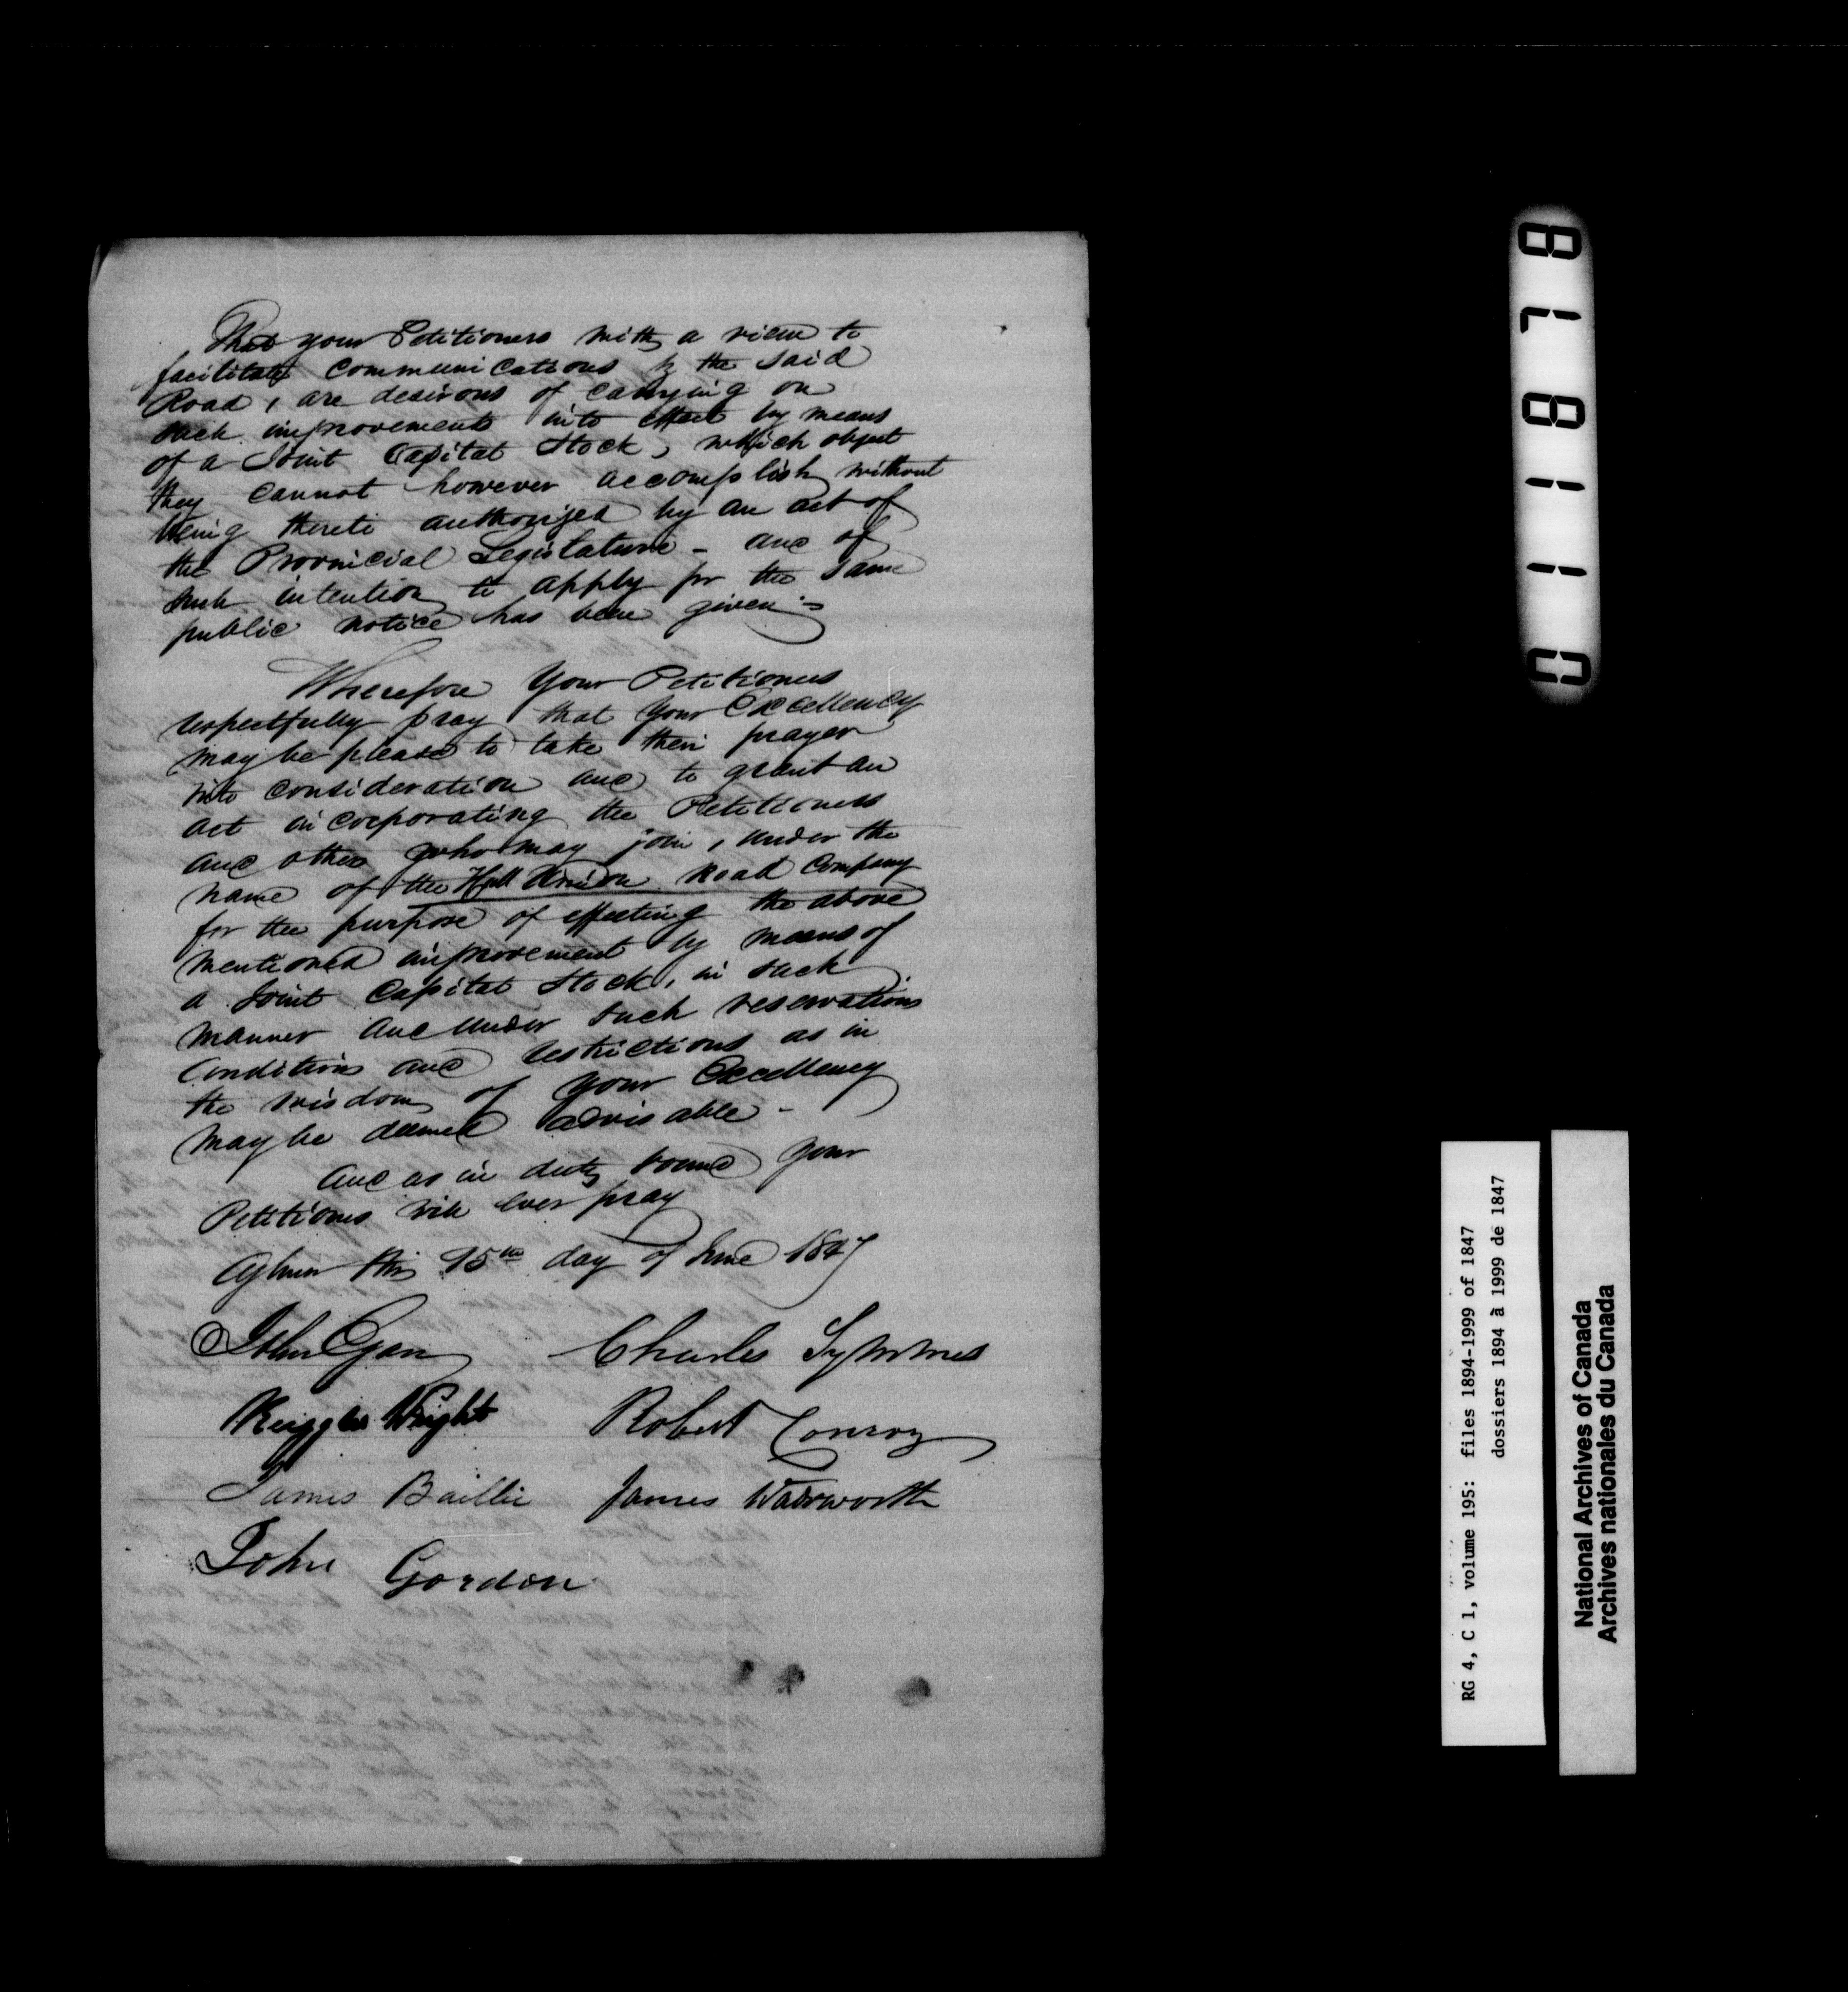 That your Petitioners with a view to
facilitate communications by the said
Road, are desirous of carrying on
such improvements into effect by means
of a Joint Capital Stock, which object
they cannot however accomplish without
being thereto authorized by an act of
the Provincial Legislature - and of
such intention to apply for the same
public notice has been given -
Wherefore Your Petitioners
respectfully pray that Your Excellency
may be pleased to take their prayer
into consideration and to grant an
act incorporating the Petitioners
and other who may join, under the
name of the Hull Union Road Company
for the purpose of effecting the above
mentioned improvement by means of
a Joint Capital Stock, in such
manner and under such reservations
Conditions and restrictions as in
the wisdom of your Excellency
may be deemed advisable -
And as in duty bound your
Petitioners will ever pray
Aylmer this 15th day of June 1847
John Egan Charles Symmes
Ruggles Wright Robert Conroy
James Baillie James Wadsworth
John Gordon
RG 4, C 1, volume 195: files 1894-1999 of 1847
dossiers 1894 à 1999 de 1847
National Archives of Canada
Archives nationales du Canada